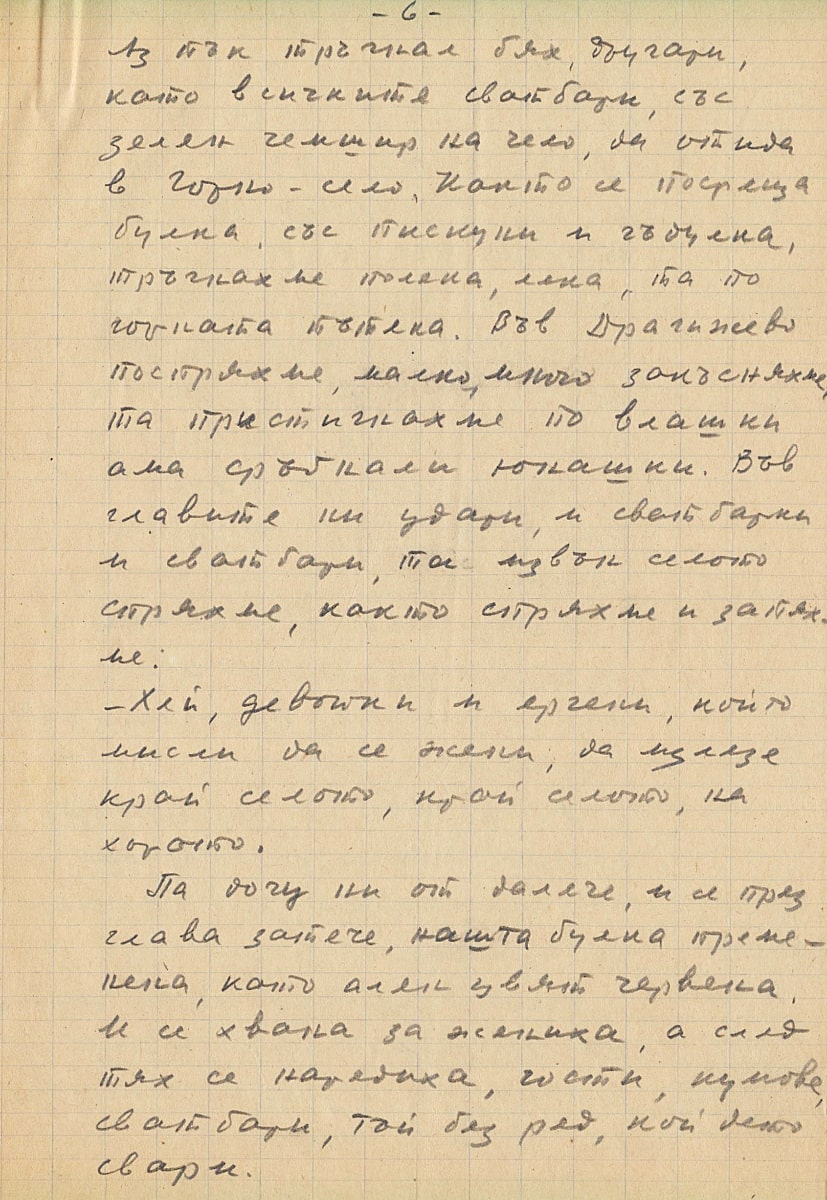 - 6 -
Аз пък тръгнал бях, другари,
като всичките сватбари, със
зелен чемшир на чело, да отида
в Горно-село. Както се посреща
булка, със пискуни и гъдулка,
тръгнахме полека, лека, та по
горната пътека. Във Драгижево
поспряхме, малко, много закъсняхме,
та пристигнахме по влашки
ама сръбнали юнашки. Във
главите ни удари, и сватбарки
и сватбари, та извън селото
спряхме, както спряхме и запях-
ме:
– Хей, девойки и ергени, който
мисли да се жени, да излезе
край селото, край селото, на
хорото.
Па дочу ни от далече, и се през
глава затече, нашта булка проме-
нена, като ален цвят червена.
И се хвана за жениха, а след
тях се наредиха, гости, кумове,
сватбари, тъй без ред, кой дето
свари.